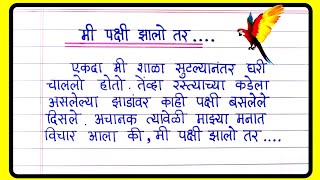 मी पक्षी झालो तर....
एकदा मी शाळा सुटल्यानंतर घरी
चाललो होतो. तेंव्हा रस्त्याच्या कडेला
असलेल्या झाडांवर काही पक्षी बसलेले
दिसले. अचानक त्यावेळी माझ्या मनात
विचार आला की, मी पक्षी झालो तर....